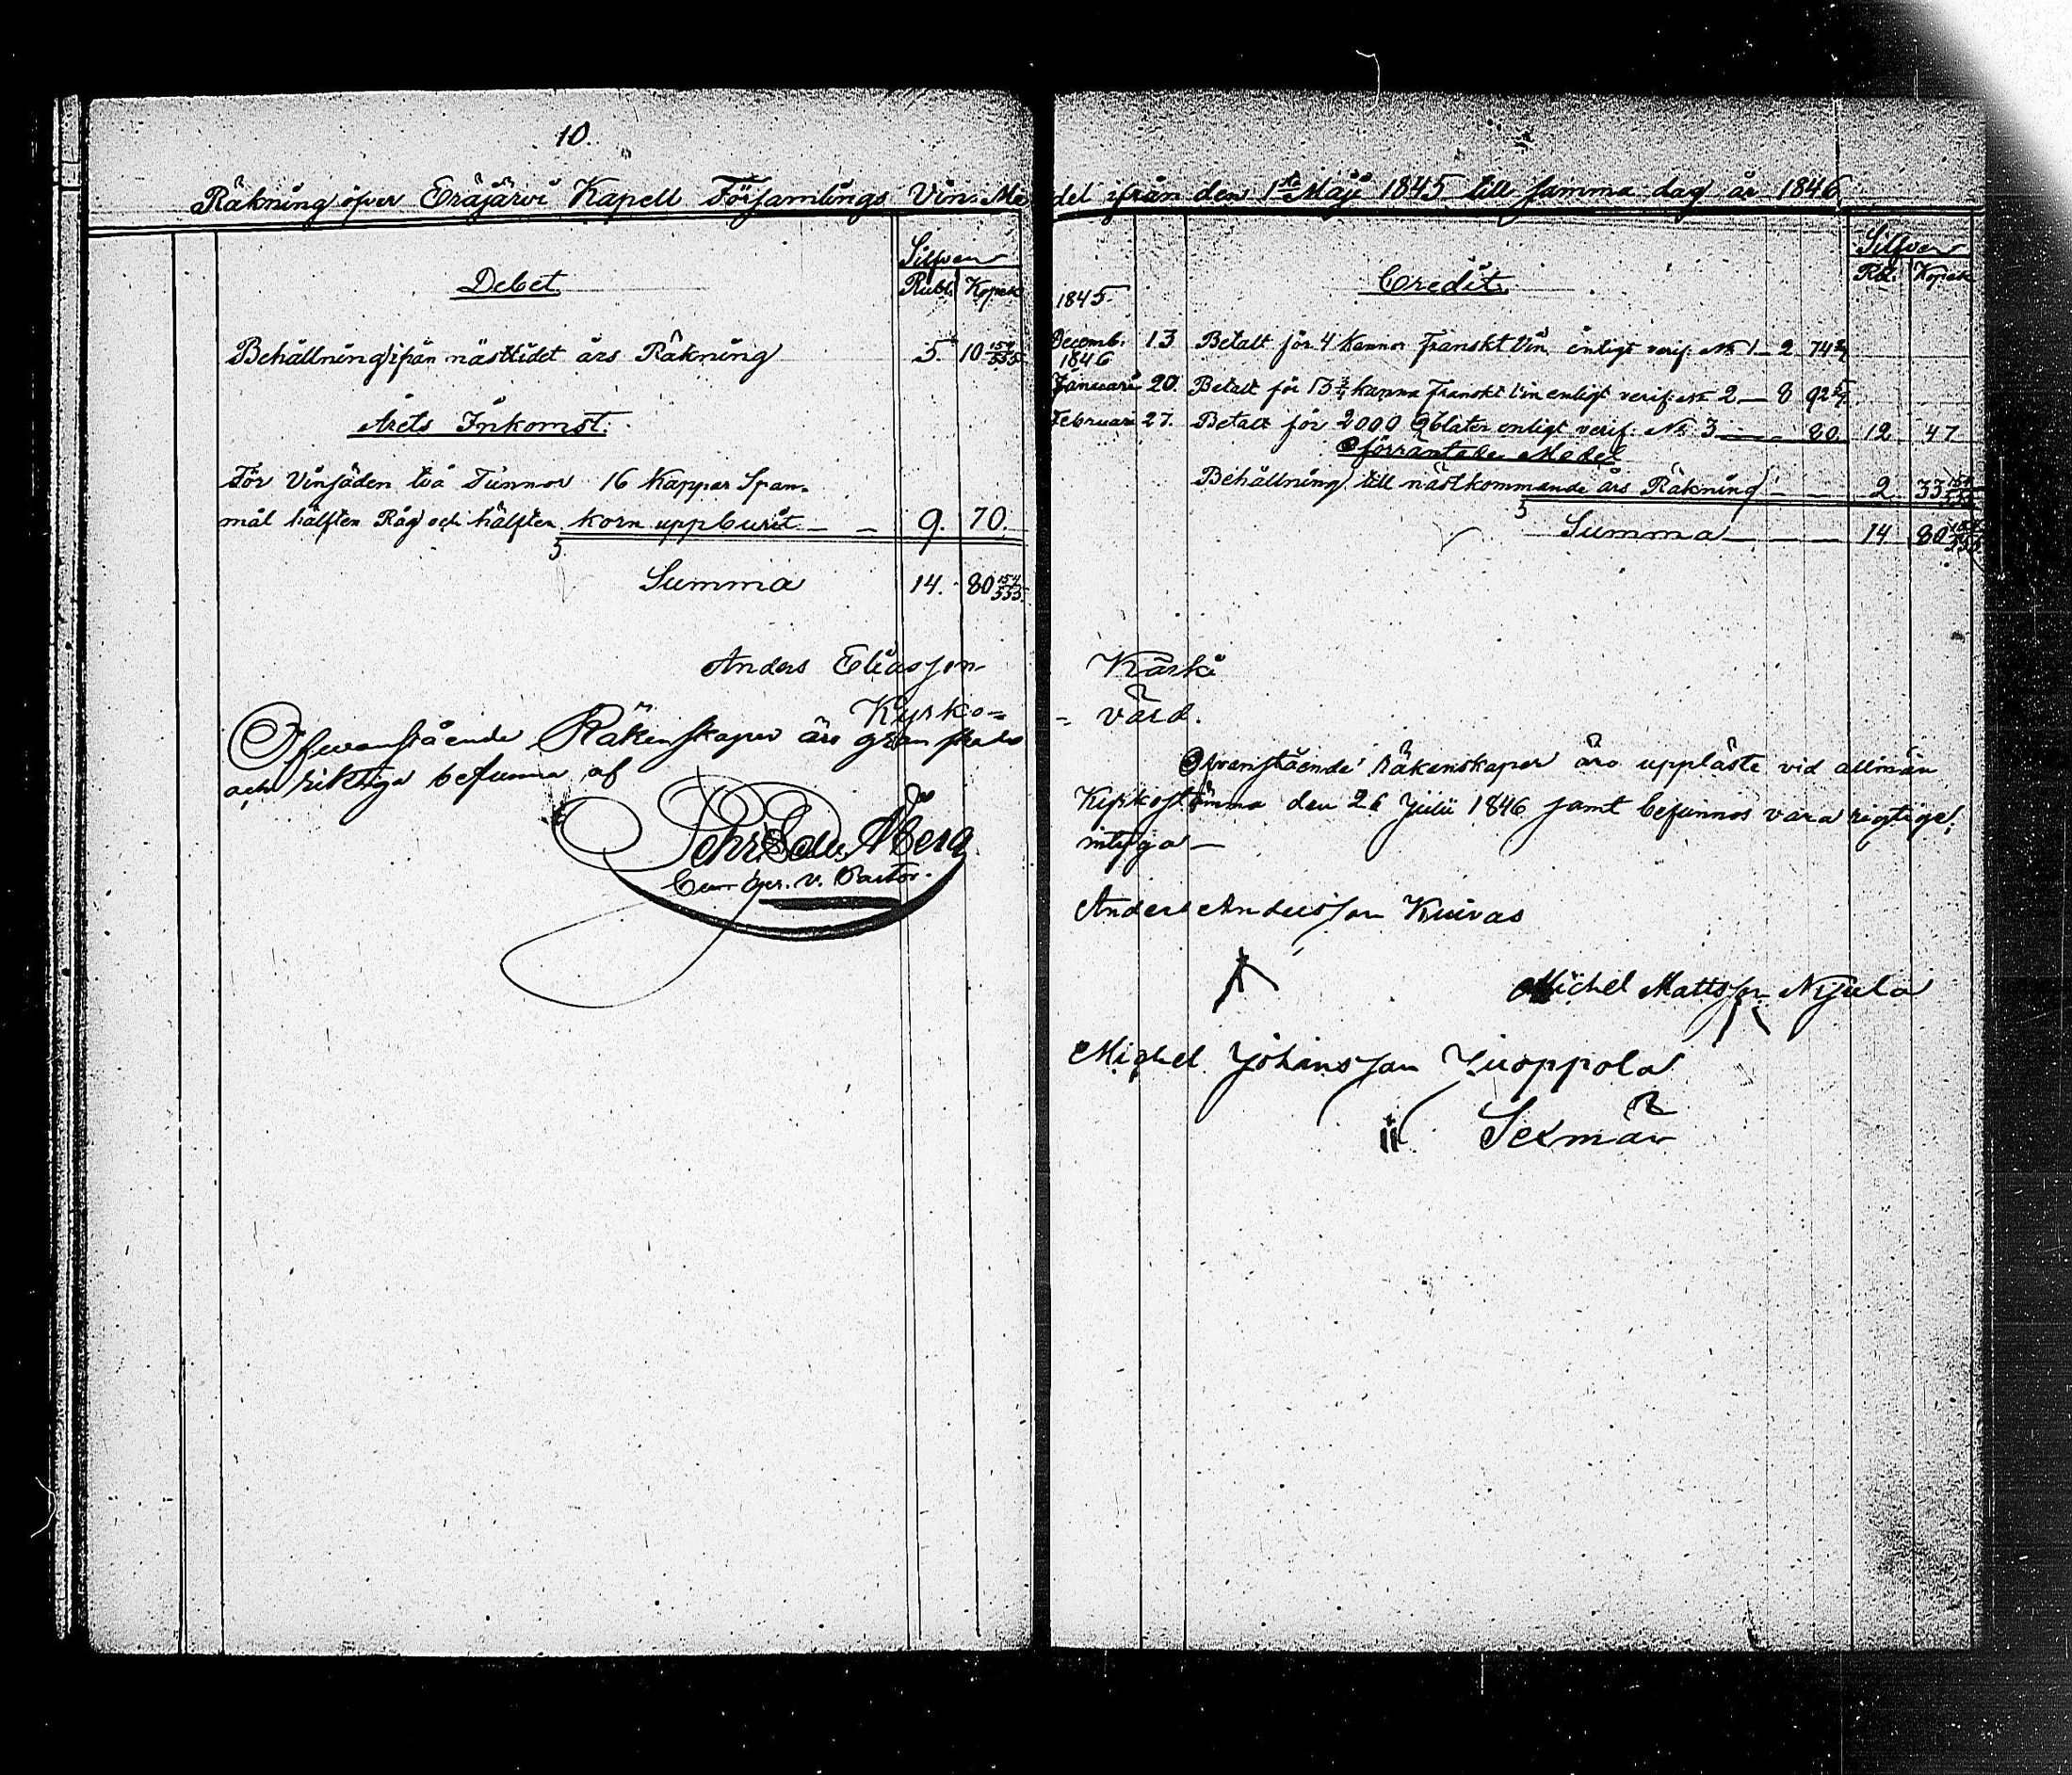 10.
Räkning öfver Eräjärvi Kapell Församlings Vin Me
Silfver
Debet
Rubl. Kopek
Behållning ifrån nästlidet års Räkning 5. 10 154/555
Årets Inkomst.
För Vinsäden två Tunnor 16 Kappar Span-
mål hälften Råg och hälften korn uppburit — — 9. 70.
Summa 14. 80 154/555.
Anders Eliasson
Kyrko=
Ofvanstående Räkenskaper äro granskade
och riktiga befunna af
Pehr Åberg
v. Pastor.
del ifrån den 1sta Maji 1845 till samma dag år 1846
Silfver
Credit.
Rbl. Kopek
1845.
Decemb. 13 Betalt för 4 Kannor Franskt Vin enligt verif. No 1 — 2 74 2/7
1846
Januari 20. Betalt för 13 3/4 kanna Franskt Vin enligt verif. No 2 — 8 92 5/7.
Februari 27. Betalt för 2000 Oblater enligt verif. No 3 — — 80. 12. 47
Oförräntade Medel
Behållning till nästkommande års Räkning — — 2. 33 154/555
Summa — — — 14. 80 154/555
Kärki
= värd.
Ofvanstående Räkenskaper äro uppläste vid allmän
Kyrkostämma den 26 Julii 1846 samt befunnos vara rigtige,
intyga —
Anders Andersson Kuivas
Michel Mattsson Nyula
Michel Johansson Kuoppola
Sexmän